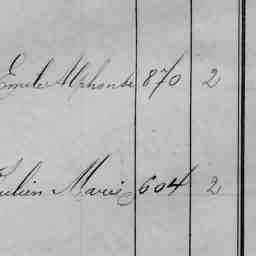 Emile Alphonse 870 2
Julien Marie 604 2